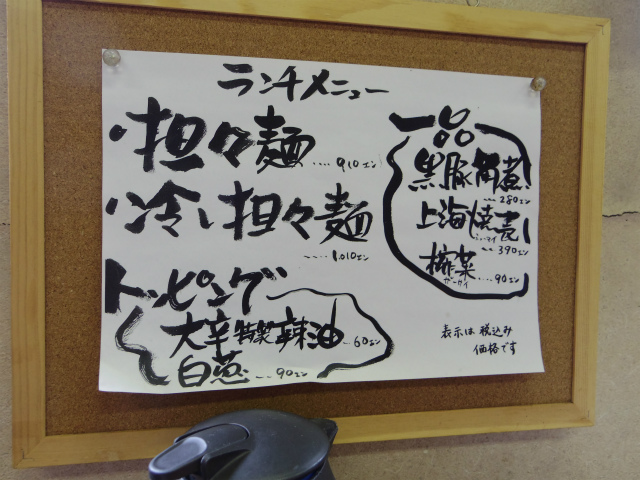 ランチメニュー
・担々麺 ....910エン
・冷し担々麺
....1.010エン
トッピング
大辛特製辣油 ..60エン
白葱 ....90エン
一品
黒豚角煮
....280エン
上海焼売
シューマイ
....390エン
搾菜 ....90エン
ザーサイ
表示は税込み
価格です